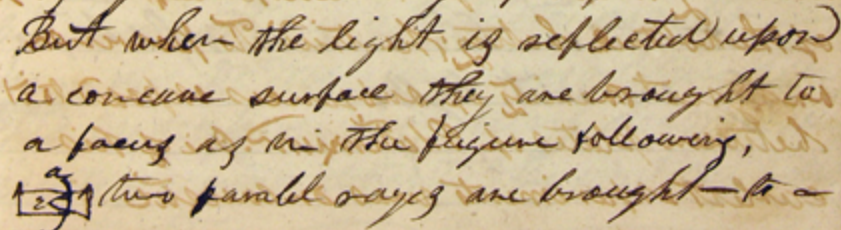 But when the light is reflected upon
a concave surface they are brought to
a focus as in the figure following,
a
two paralel rays are brought to a